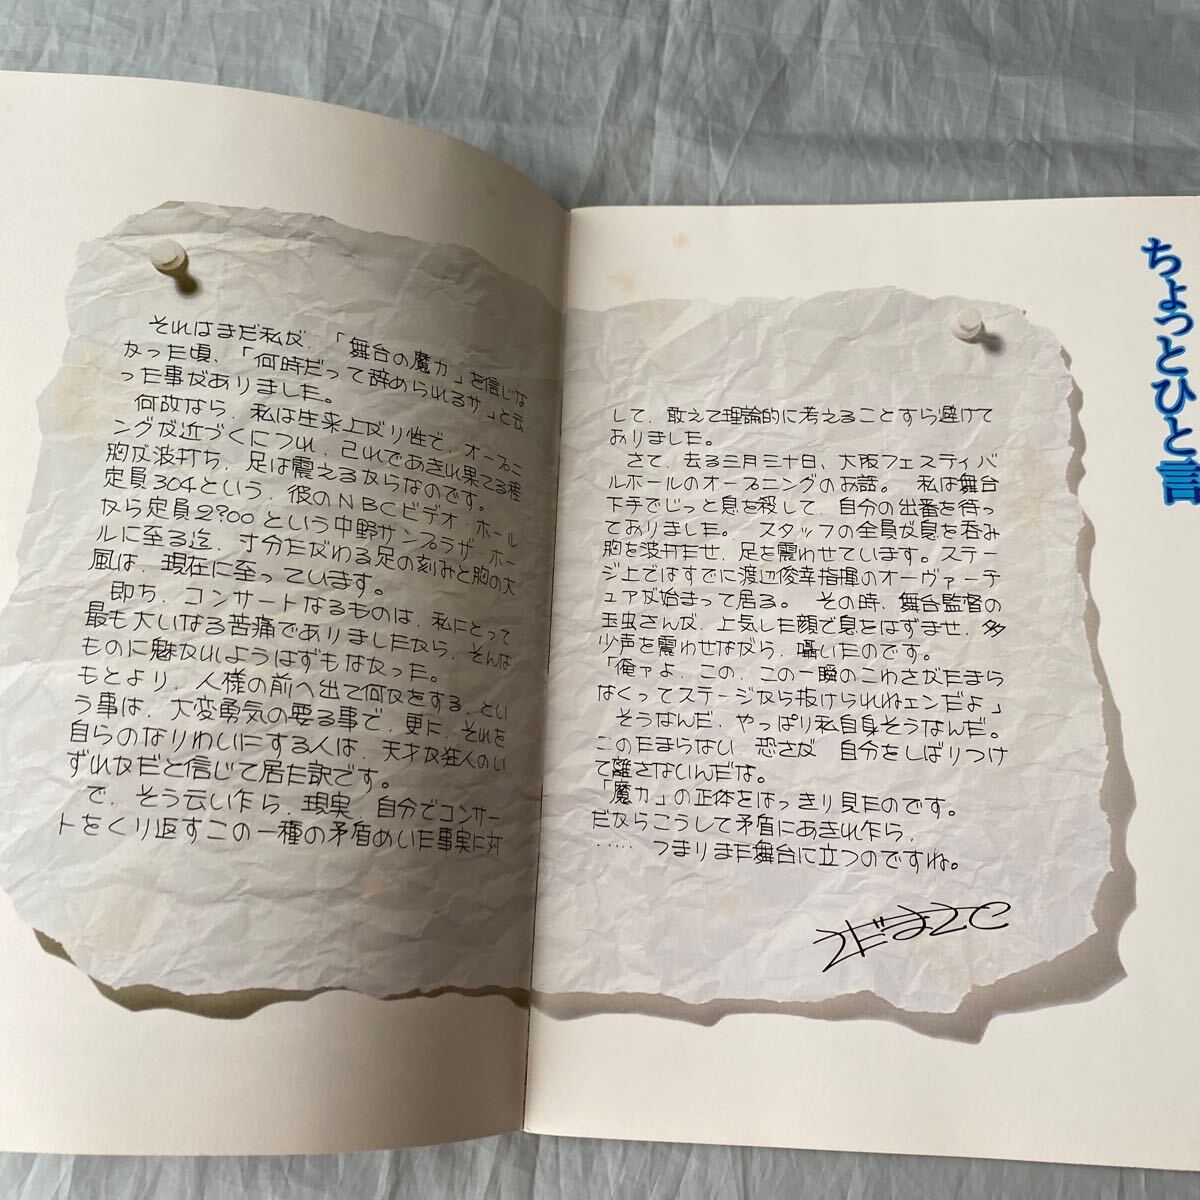 ちょっとひと言
それはまだ私が、「舞台の魔力」を信じな
かった頃、「何時だって辞められるサ」と云
った事がありました。
何故なら、私は生来上がり性で、オープニ
ングが近づくにつれ、己れであきれ果てる程
胸が波打ち、足は震えるからなのです。
定員304という、彼のNBCビデオ・ホール
から定員2?00という中野サンプラザ・ホー
ルに至る迄、寸分たがわる足の刻みと胸の大
風は、現在に至っています。
即ち、コンサートなるものは、私にとって
最も大いなる苦痛でありましたから、そんな
ものに魅かれようはずもなかった。
もとより、人様の前へ出て何かをする、とい
う事は、大変勇気の要る事で、更に、それを
自らのなりわいにする人は、天才か狂人のい
ずれかだと信じて居た訳です。
で、そう云い乍ら、現実、自分でコンサー
トをくり返すこの一種の矛盾めいた事実に対
して、敢えて理論的に考えることすら避けて
おりました。
さて、去る三月三十日、大阪フェスティバ
ルホールのオープニングのお話。 私は舞台
下手でじっと息を殺して、自分の出番を待っ
ておりました。 スタッフの全員が息を呑み
胸を波打たせ、足を震わせています。ステー
ジ上ではすでに渡辺俊幸指揮のオーヴァーチ
ュアが始まって居る。 その時、舞台監督の
玉虫さんが、上気した顔で息をはずませ、多
少声を震わせながら、囁いたのです。
「俺ァよ、この、この一瞬のこわさがたまら
なくってステージから抜けられねェンだよ」
そうなんだ、やっぱり私自身そうなんだ。
このたまらない、恐さが 自分をしばりつけ
て離さないんだな。
「魔力」の正体をはっきり見たのです。
だからこうして矛盾にあきれ乍ら、
‥‥‥ つまりまた舞台に立つのですね。
さだまさし